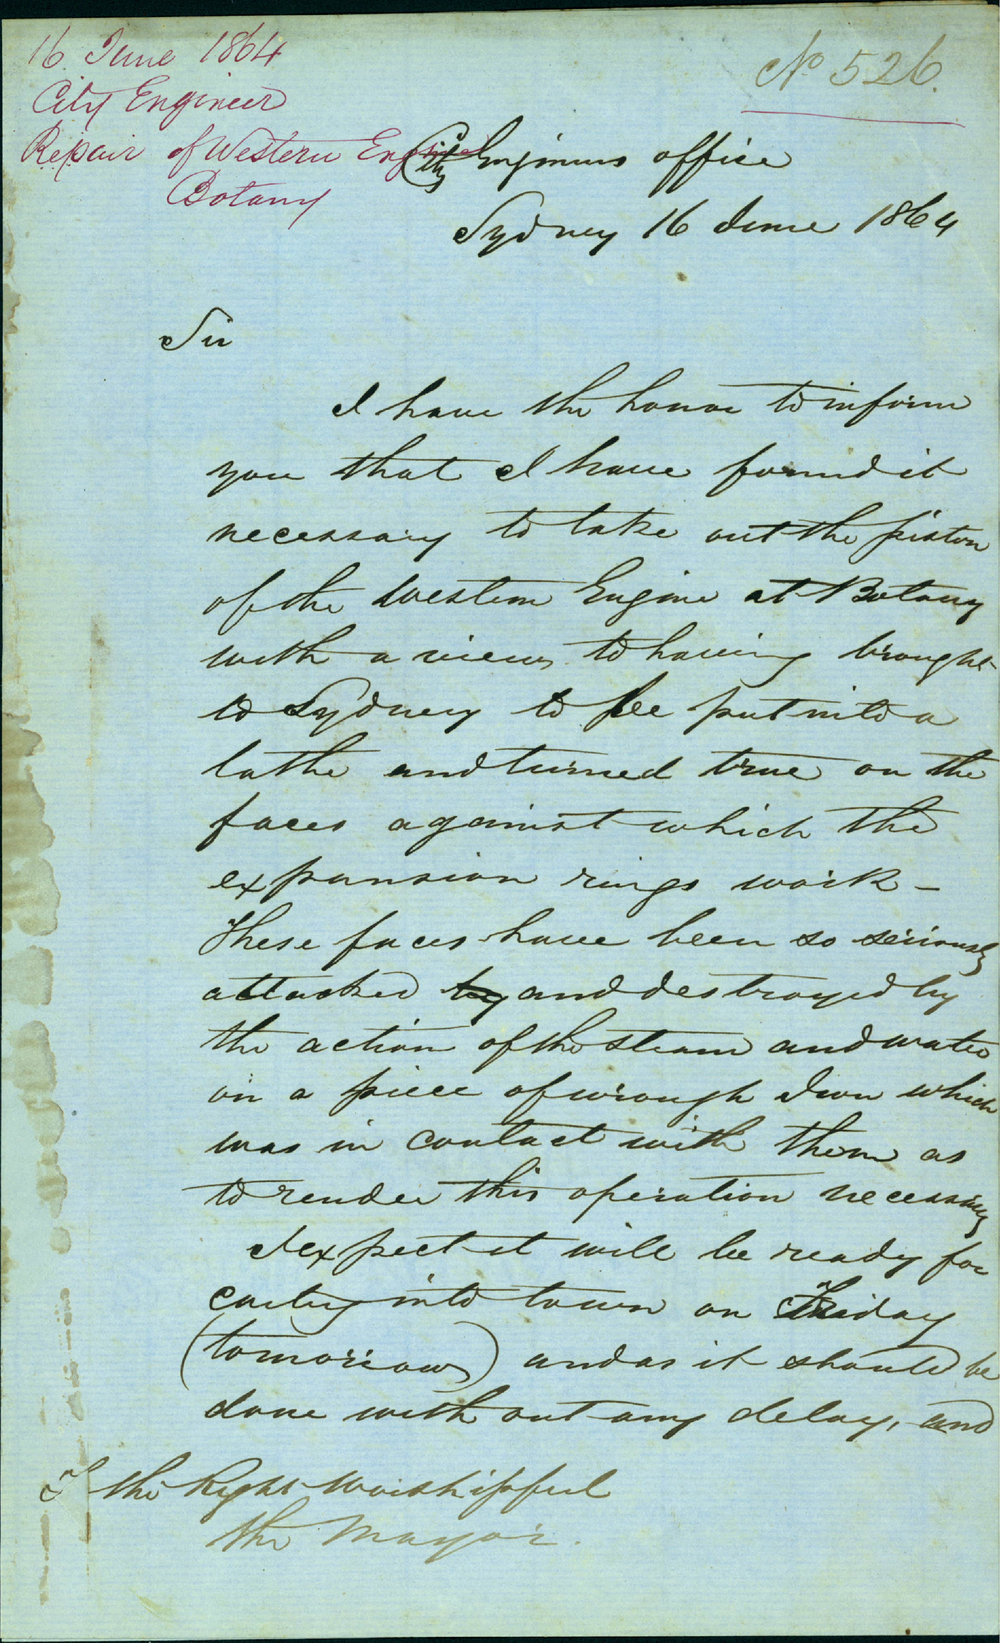 16 June 1864
City Engineer
Repair of Western Engine
Botany
No 526.
City Engineers office
Sydney 16 June 1864
Sir
I have the honor to inform
you that I have found it
necessary to take out the piston
of the Western Engine at Botany
with a view to having brought
to Sydney to be put into a
lathe and turned true on the
faces against which the
expansion rings work –
These faces have been so seriously
attacked by and destroyed by
the action of the steam and water
on a piece of wrough Iron which
was in contact with them as
to render this operation necessary
I expect it will be ready for
carting into town on Friday
(tomorrow) and as it should be
done with out any delay, and
To the Right Worshipful
the Mayor.